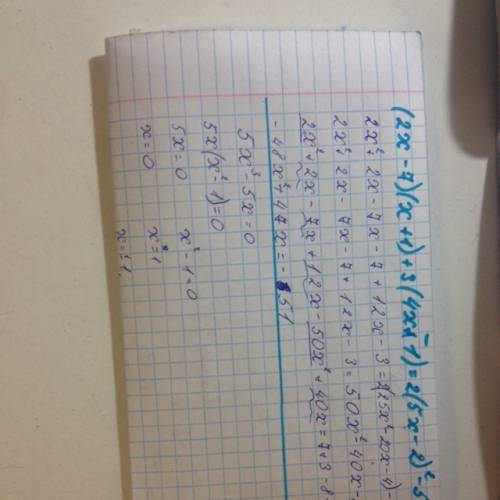 (2x-7)(x+1)+3(4x-1)=2(5x-2)²-5
2x²+2x-7x-7+12x-3=2(25x²-20x-4)-
2x²+2x-7x-7+12x-3=50x²-40x-
2x²+2x-7x+12x-50x²+40x=7+3-8-
-48x²+47x=-51
5x³-5x=0
5x(x²-1)=0
5x=0 x²-1=0
x=0 x²=1
x=±1.